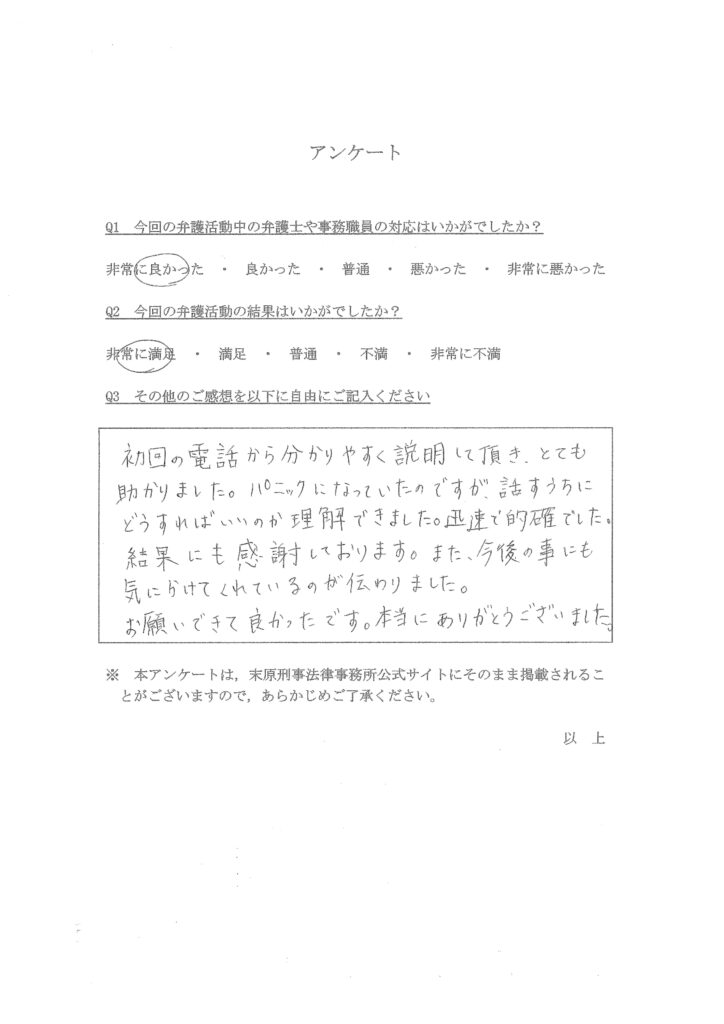 アンケート
Q1　今回の弁護活動中の弁護士や事務職員の対応はいかがでしたか？
非常に良かった　・　良かった　・　普通　・　悪かった　・　非常に悪かった
Q2　今回の弁護活動の結果はいかがでしたか？
非常に満足　・　満足　・　普通　・　不満　・　非常に不満
Q3　その他のご感想を以下に自由にご記入ください
初回の電話から分かりやすく説明して頂き、とても
助かりました。パニックになっていたのですが、話すうちに
どうすればいいのか理解できました。迅速で的確でした。
結果にも感謝しております。また、今後の事にも
気にかけてくれているのが伝わりました。
お願いできて良かったです。本当にありがとうございました。
※　本アンケートは，末原刑事法律事務所公式サイトにそのまま掲載されるこ
とがございますので，あらかじめご了承ください。
以　上